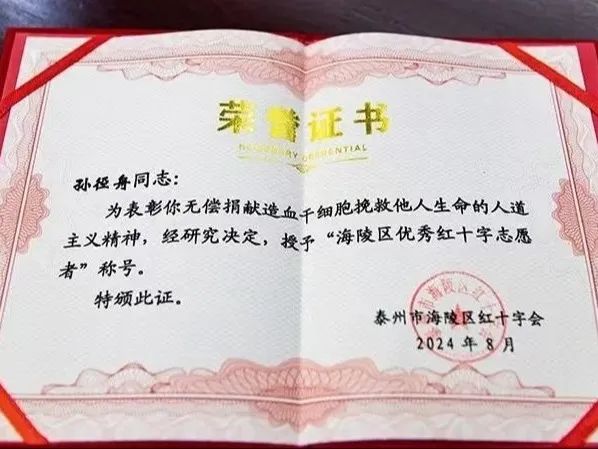 荣誉证书
HONORARY CREDENTIAL
孙径舟同志：
为表彰你无偿捐献造血干细胞挽救他人生命的人道
主义精神，经研究决定，授予“海陵区优秀红十字志愿
者”称号。
特颁此证。
泰州市海陵区红十字会
2024 年 8 月